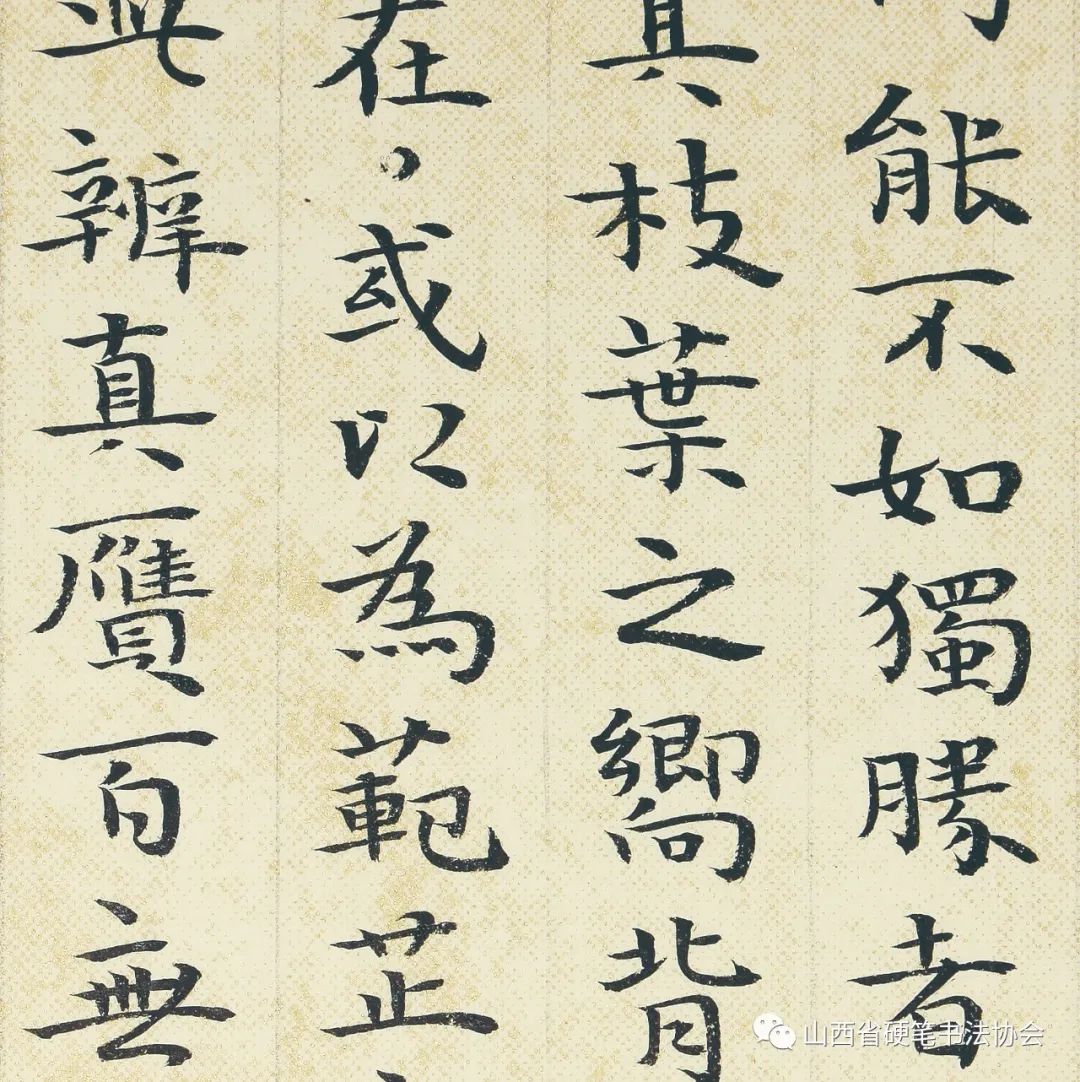 能不如獨勝者
真枝葉之嚮背
在。或以為範芷
辨真贗百無
山西省硬笔书法协会